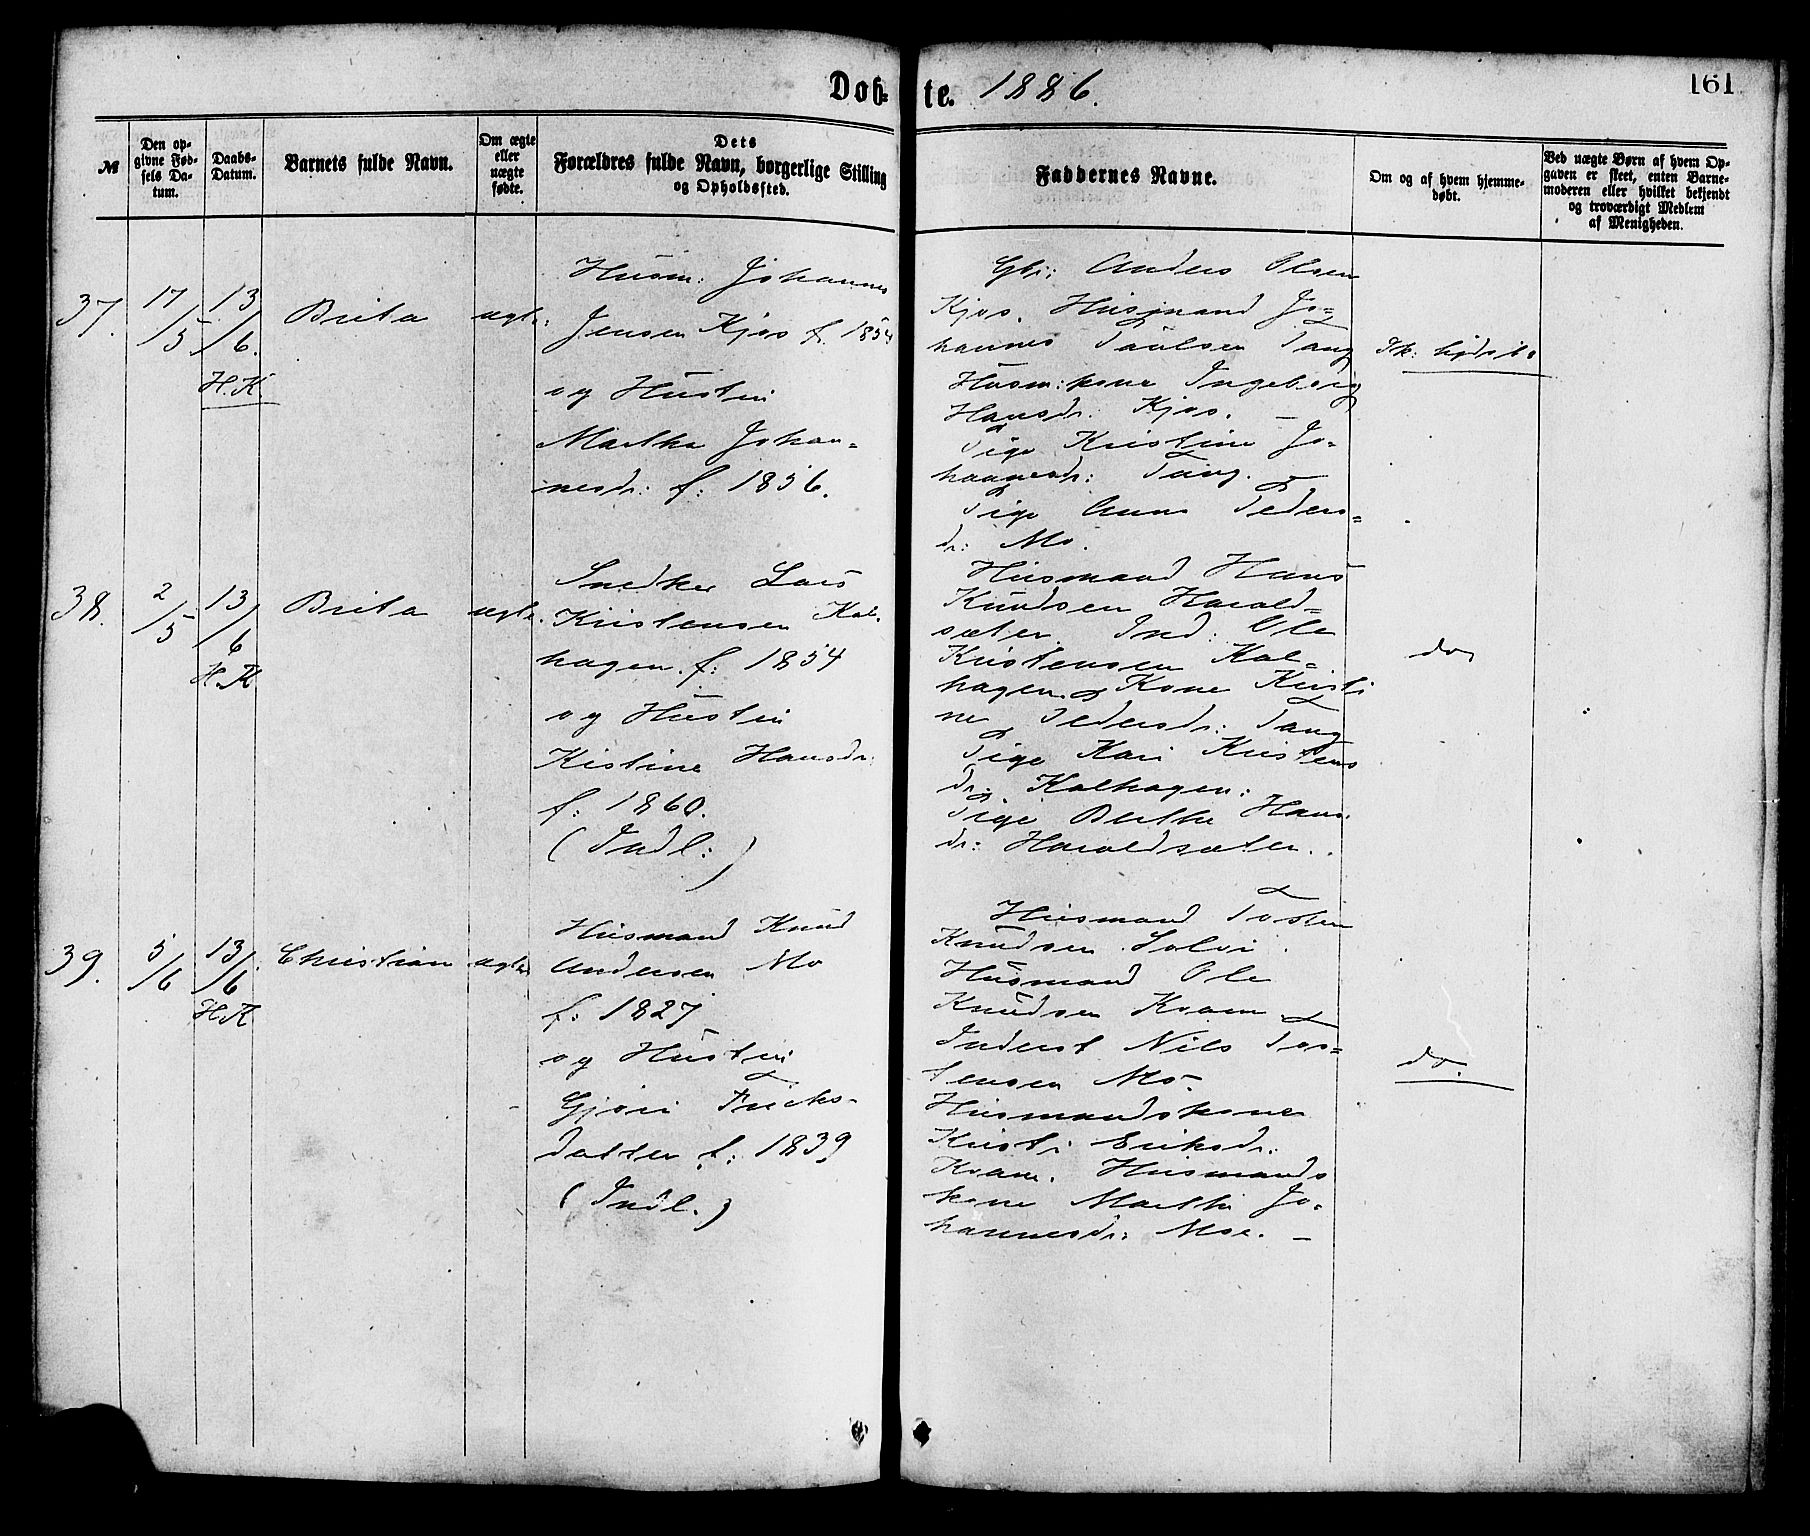 Døb-
te. 1886.
161
№
Den op-
givne Fød-
sels Da-
tum.
Daabs-
Datum.
Barnets fulde Navn.
Om ægte
eller
uægte
fødte.
Dets
Forældres fulde Navn, borgerlige Stilling
og Opholdssted.
Faddernes Navne.
Om og af hvem hjemme-
døbt.
Ved uægte Børn af hvem Op-
gaven er skeet, enten Barne-
moderen eller hvilket bekjendt
og troværdigt Medlem
af Menigheden.
37.
17/5
13/6.
H. K.
Brita
ægte:
Husm: Johannes
Jensen Kjos f. 1854
og Hustru
Marthe Johan-
nesdr: f: 1856.
Gbr: Anders Olsen
Kjos. Husmand Jo-
hannes Paulsen Tang
Husm: kone Ingeborg
Hansdr: Kjos. –
Pige Kristine Jo-
hannesdr: Tang.
Pige Anne Peders-
dr: Mo.
38.
2/5
13/6
H. K
Brita
ægte.
Snedker Lars
Kristensen Kal-
hagen. f: 1854
og Hustru
Kistine Hansdr:
f: 1860.
(Indl:)
Husmand Hans
Knudsen Harald-
sæter. Ind: Ole
Kristensen Kal-
hagen. Kone Kristi
ne Pedersdr: Tang
Pige Kari Kristens
dr: Kalhagen:
Pige Berthe Hans
dr: Haraldsæter.
do,
39.
5/6
13/6.
H. K
Christian
ægte
Husmand Knud
Andersen Mo
f: 1827
og Hustru
Gjøri
datter f: 1839
(Indl.)
Husmand Tosten
Knudsen Solvi.
Husmand Ole
Knudsen Kvam.
Inderst Nils Tos-
tensen Mo.
Husmandskone
Kristi Eriksdr:
Kvam. Husmands
kone Marthe Jo-
hannesdr: Moe. –
do.